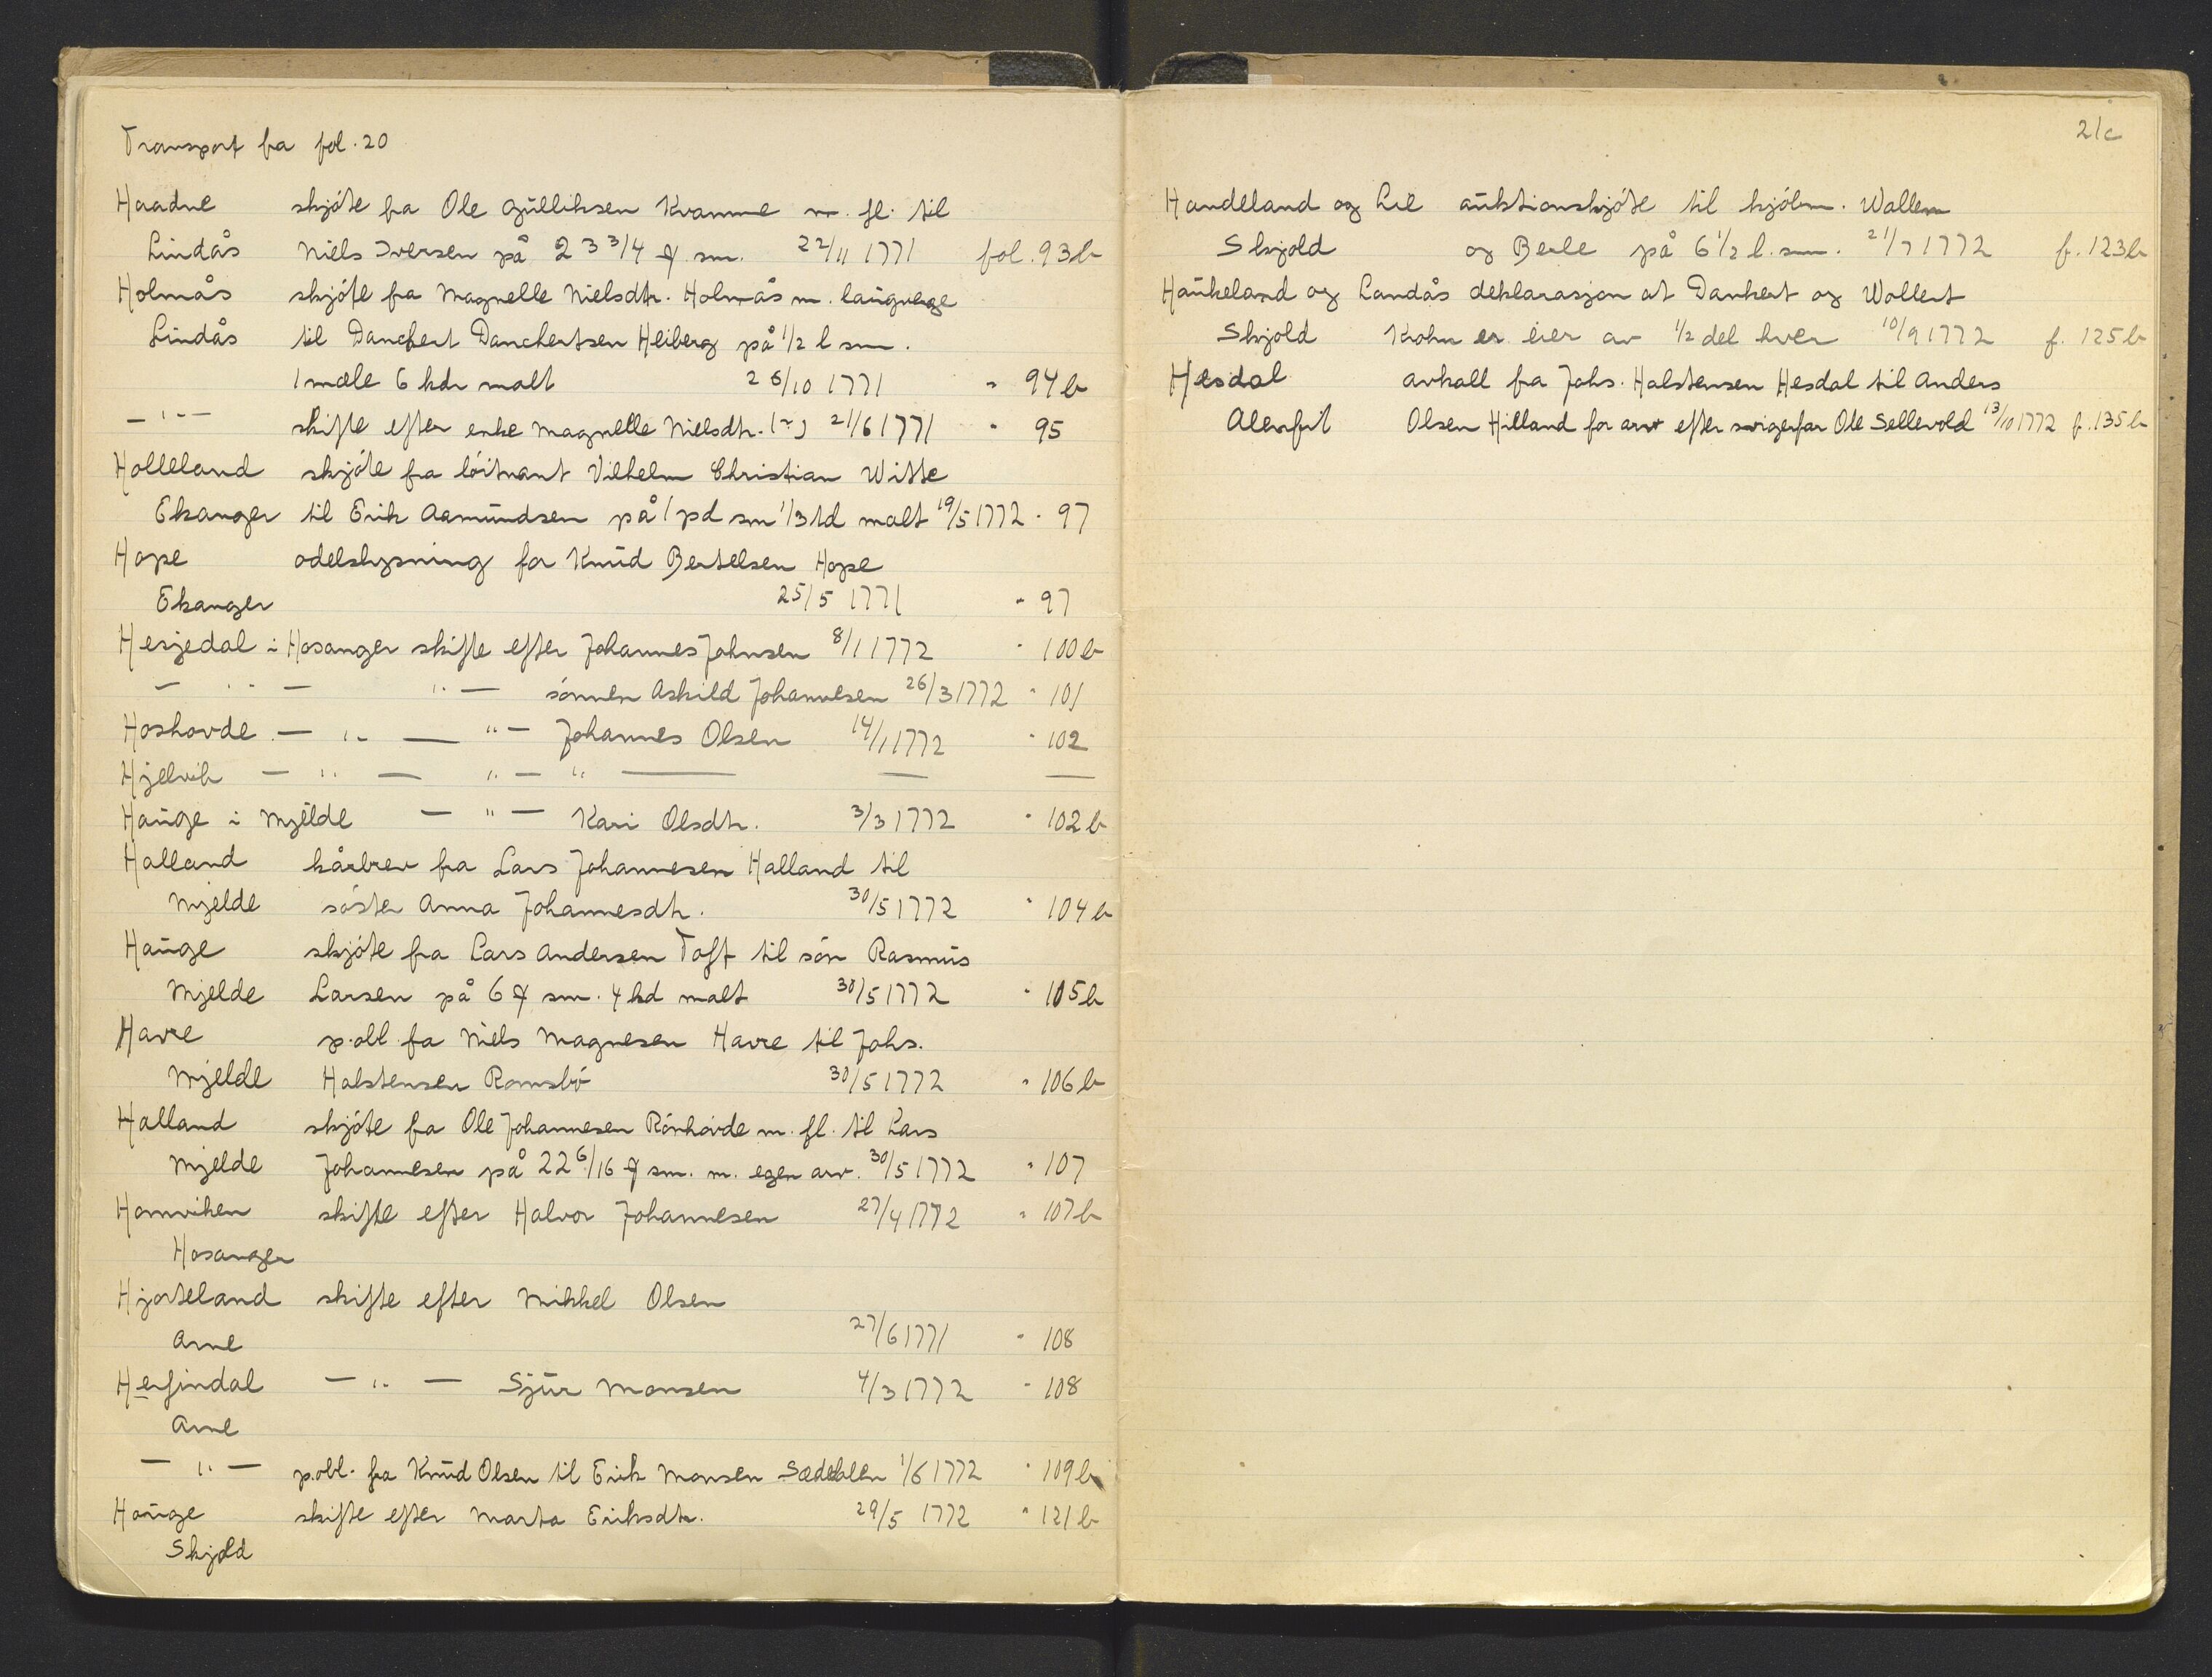 Transport fra fol. 20
Haadne skjöte fra Ole Gulliksen Kvamme m. fl. til
Lindås Niels Iversen på 2 3 3/4 sm. 22/11 1771 fol. 93b
Holmås skjöte fra Magnelle Nielsdtr. Holmås m. laugverge
Lindås til Danchert Danchertsen Heiberg på 1/2 l sm.
1 mæle 6 kdr malt 26/10 1771 " 94b
— " — skifte efter enke Magnelle Nielsdtr. 21/6 1771 " 95
Holleland skjöte fra löitnant Vilhelm Christian Witte
Ekanger til Erik Aamundsen på 1 pd sm 1/3 td malt 19/5 1772 " 97
Hope odelslysning for Knud Bertelsen Hope
Ekanger 25/5 1771 " 97
Hesjedal i Hosanger skifte efter Johannes Johnsen 8/1 1772 " 100b
— " — " — sönnen Askild Johannesen 26/3 1772 " 101
Hoshovde — " — " — Johannes Olsen 14/1 1772 " 102
Hjelvik — " — " — " — — —
Hauge i Mjelde — " — Kari Olsdtr. 3/3 1772 " 102b
Halland kårbrev fra Lars Johannesen Halland til
Mjelde söster Anna Johannesdtr. 30/5 1772 " 104b
Hauge skjöte fra Lars Andersen Toft til sön Rasmus
Mjelde Larsen på 6 sm. 4 kd malt 30/5 1772 " 105b
Havre p.obl. fra Niels Magnesen Havre til Johs.
Mjelde Halstensen Romslö 30/5 1772 " 106b
Halland skjöte fra Ole Johannesen Rönhovde m. fl. til Lars
Mjelde Johannesen på 22 6/16 sm. m. egen arv. 30/5 1772 " 107
Hamviken skifte efter Halvor Johannesen 27/4 1772 " 107b
Hosanger
Hjorteland skifte efter Mikkel Olsen
Arne 27/6 1771 " 108
Herfindal — " — Sjur Monsen 4/3 1772 " 108
Arne
— " — p.obl. fra Knud Olsen til Erik Monsen Sædalen 1/6 1772 " 109b
Hauge skifte efter Marta Eriksdtr. 29/5 1772 " 121b
Skjold
21c
Handeland og Lie auktionskjöte til kjöbm. Wallem
Skjold og Beile på 6 1/2 l. sm. 21/7 1772 f. 123b
Haukeland og Landås deklarasjon at Dankert og Wollert
Skjold Krohn er eier av 1/2 del hver 10/9 1772 f. 125b
Hesdal avkall fra Johs. Halstensen Hesdal til Anders
Alenfit Olsen Hilland for arv efter svigerfar Ole Sellevold 13/10 1772 f. 135b